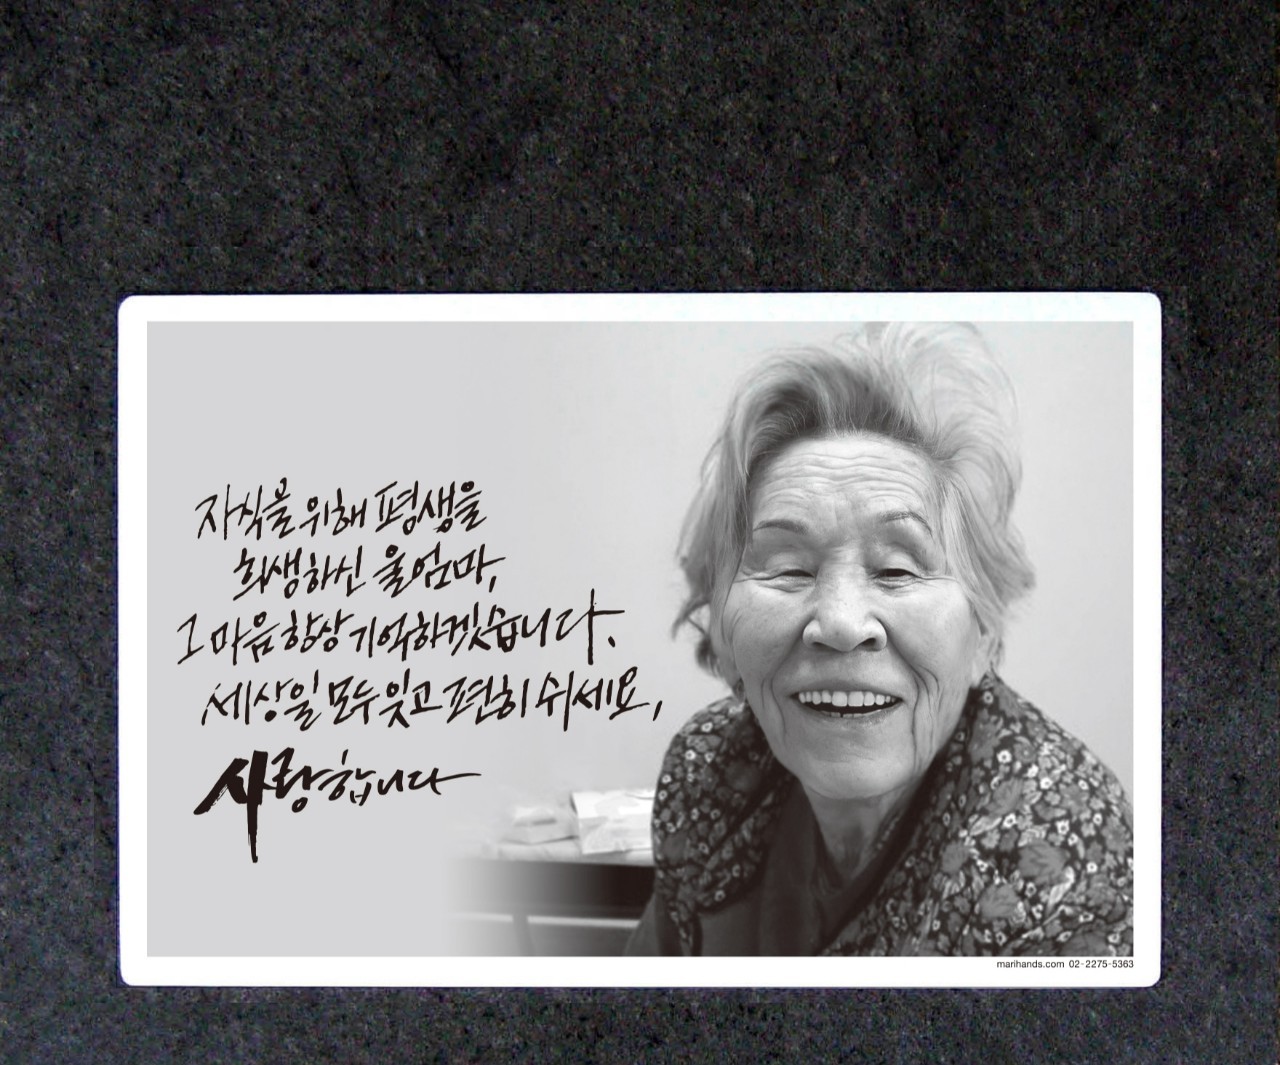 자식을 위해 평생을
희생하신 울엄마,
그 마음 항상 기억하겠습니다.
세상일 모두 잊고 편히 쉬세요,
사랑합니다
marihands.com 02-2275-5363